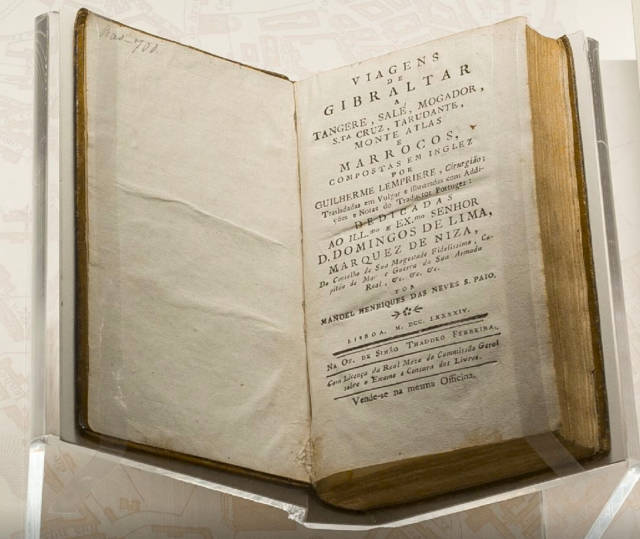 VIAGENS
DE
GIBRALTAR
A
TANGERE, SALÉ, MOGADOR,
S.TA CRUZ, TARUDANTE,
MONTE ATLAS
E
MARROCOS,
COMPOSTAS EM INGLEZ
POR
GUILHERME LEMPRIERE, Cirurgião;
Trasladadas em Vulgar e illustradas com Addi-
ções e Notas do Traductor Portuguez:
DEDICADAS
AO ILL.mo E EX.mo SENHOR
D. DOMINGOS DE LIMA,
MARQUEZ DE NIZA,
Do Conselho de Sua Magestade Fidelissima, Ca-
pitão de Mar e Guerra da Sua Armada
Real, &c. &c. &c.
POR
MANOEL HENRIQUES DAS NEVES S. PAIO.
LISBOA, M. DCC. LXXXXIV.
NA OF. DE SIMÃO THADDEO FERREIRA.
Com Licença da Real Meza da Commissão Geral
sobre o Exame e Censura dos Livros.
Vende-se na mesma Officina.